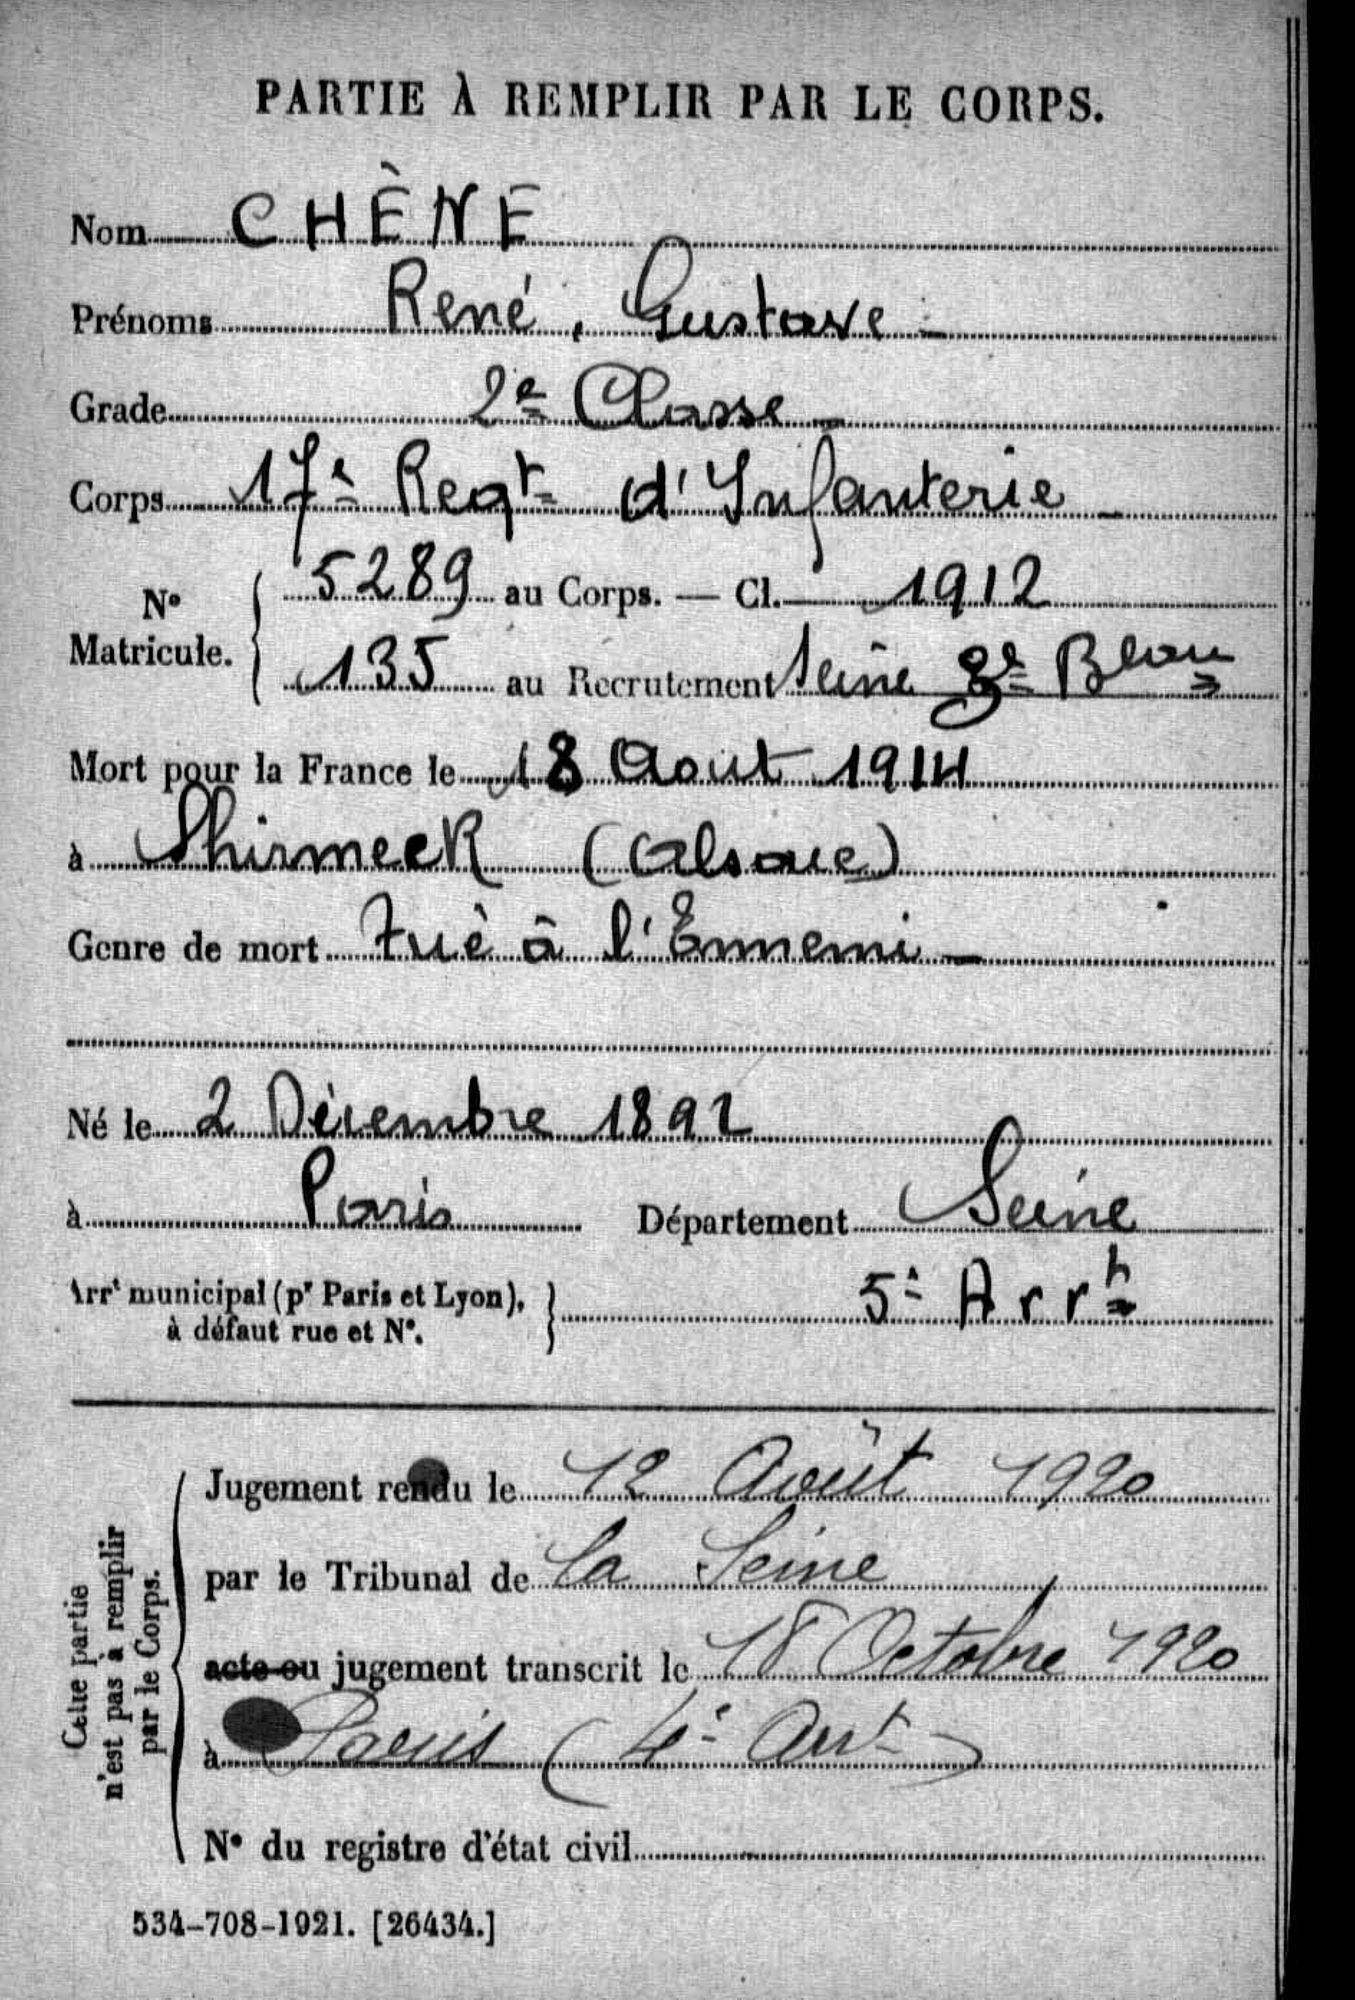 PARTIE À REMPLIR PAR LE CORPS.
Nom CHÈNE
Prénoms René, Gustave -
Grade 2e Classe -
Corps 17e Regt d'Infanterie -
No Matricule. { 5289 au Corps. — Cl. 1912
135 au Recrutement Seine 3e Beau
Mort pour la France le 18 Aout 1914
à Shirmeck (Alsace)
Genre de mort Tué à l'Ennemi -
Né le 2 Décembre 1892
à Paris Département Seine
Arrt municipal (pr Paris et Lyon), à défaut rue et No. } 5e Arrt
Cette partie n'est pas à remplir par le Corps.
Jugement rendu le 12 Août 1920
par le Tribunal de la Seine
acte ou jugement transcrit le 18 Octobre 1920
à Paris (4e Arrt)
No du registre d'état civil
534-708-1921. [26434.]